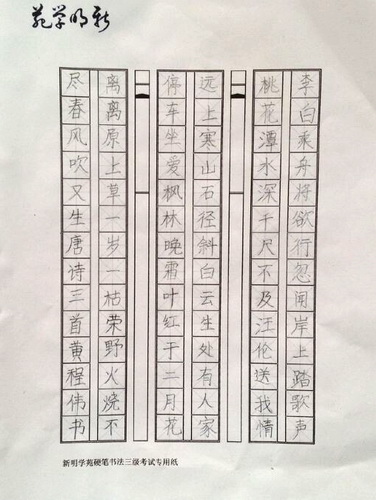 新明学苑
李白乘舟将欲行忽闻岸上踏歌声
桃花潭水深千尺不及汪伦送我情
远上寒山石径斜白云生处有人家
停车坐爱枫林晚霜叶红于二月花
离离原上草一岁一枯荣野火烧不
尽春风吹又生唐诗三首黄程伟书
新明学苑硬笔书法三级考试专用纸